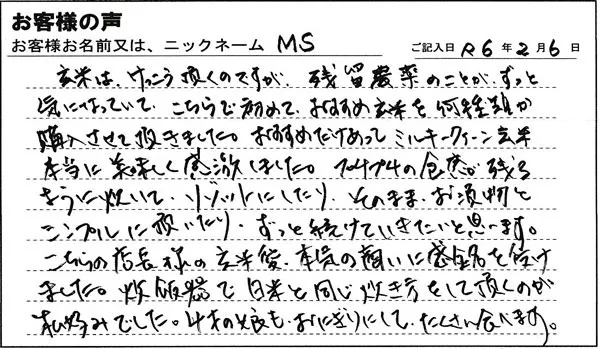 お客様の声
お客様お名前又は、ニックネーム MS ご記入日 R6年2月6日
玄米は、けっこう頂くのですが、残留農薬のことが、ずっと
気になっていて、こちらで初めて、おすすめ玄米を何種類か
購入させて頂きました。おすすめだけあってミルキークィーン玄米
本当に美味しく感激しました。プチプチの食感が残る
ように炊いて、リゾットにしたり、そのまま、お漬物と
シンプルに頂いたり、ずっと続けていきたいと思います。
こちらの店長様の玄米愛、本気の願いに感銘を受け
ました。炊飯器で白米と同じ炊き方をして頂くのが
私好みでした。4才の娘も、おにぎりにして、たくさん食べます。